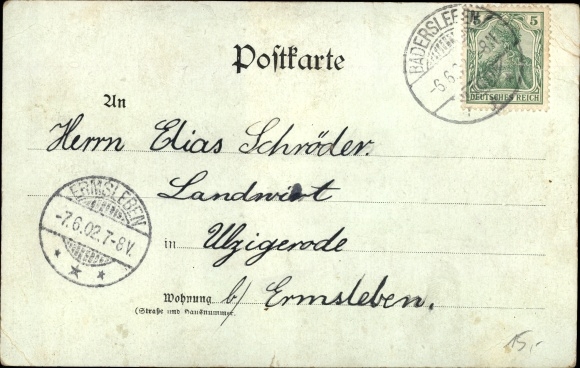 Postkarte
BADERSLEBEN
-6.6.
5
DEUTSCHES REICH
An
Herrn Elias Schröder.
Landwirt
in Ulzigerode
ERMSLEBEN
-7.6.02.7-8V.
Wohnung b/ Ermsleben.
(Straße und Hausnummer)
15,-